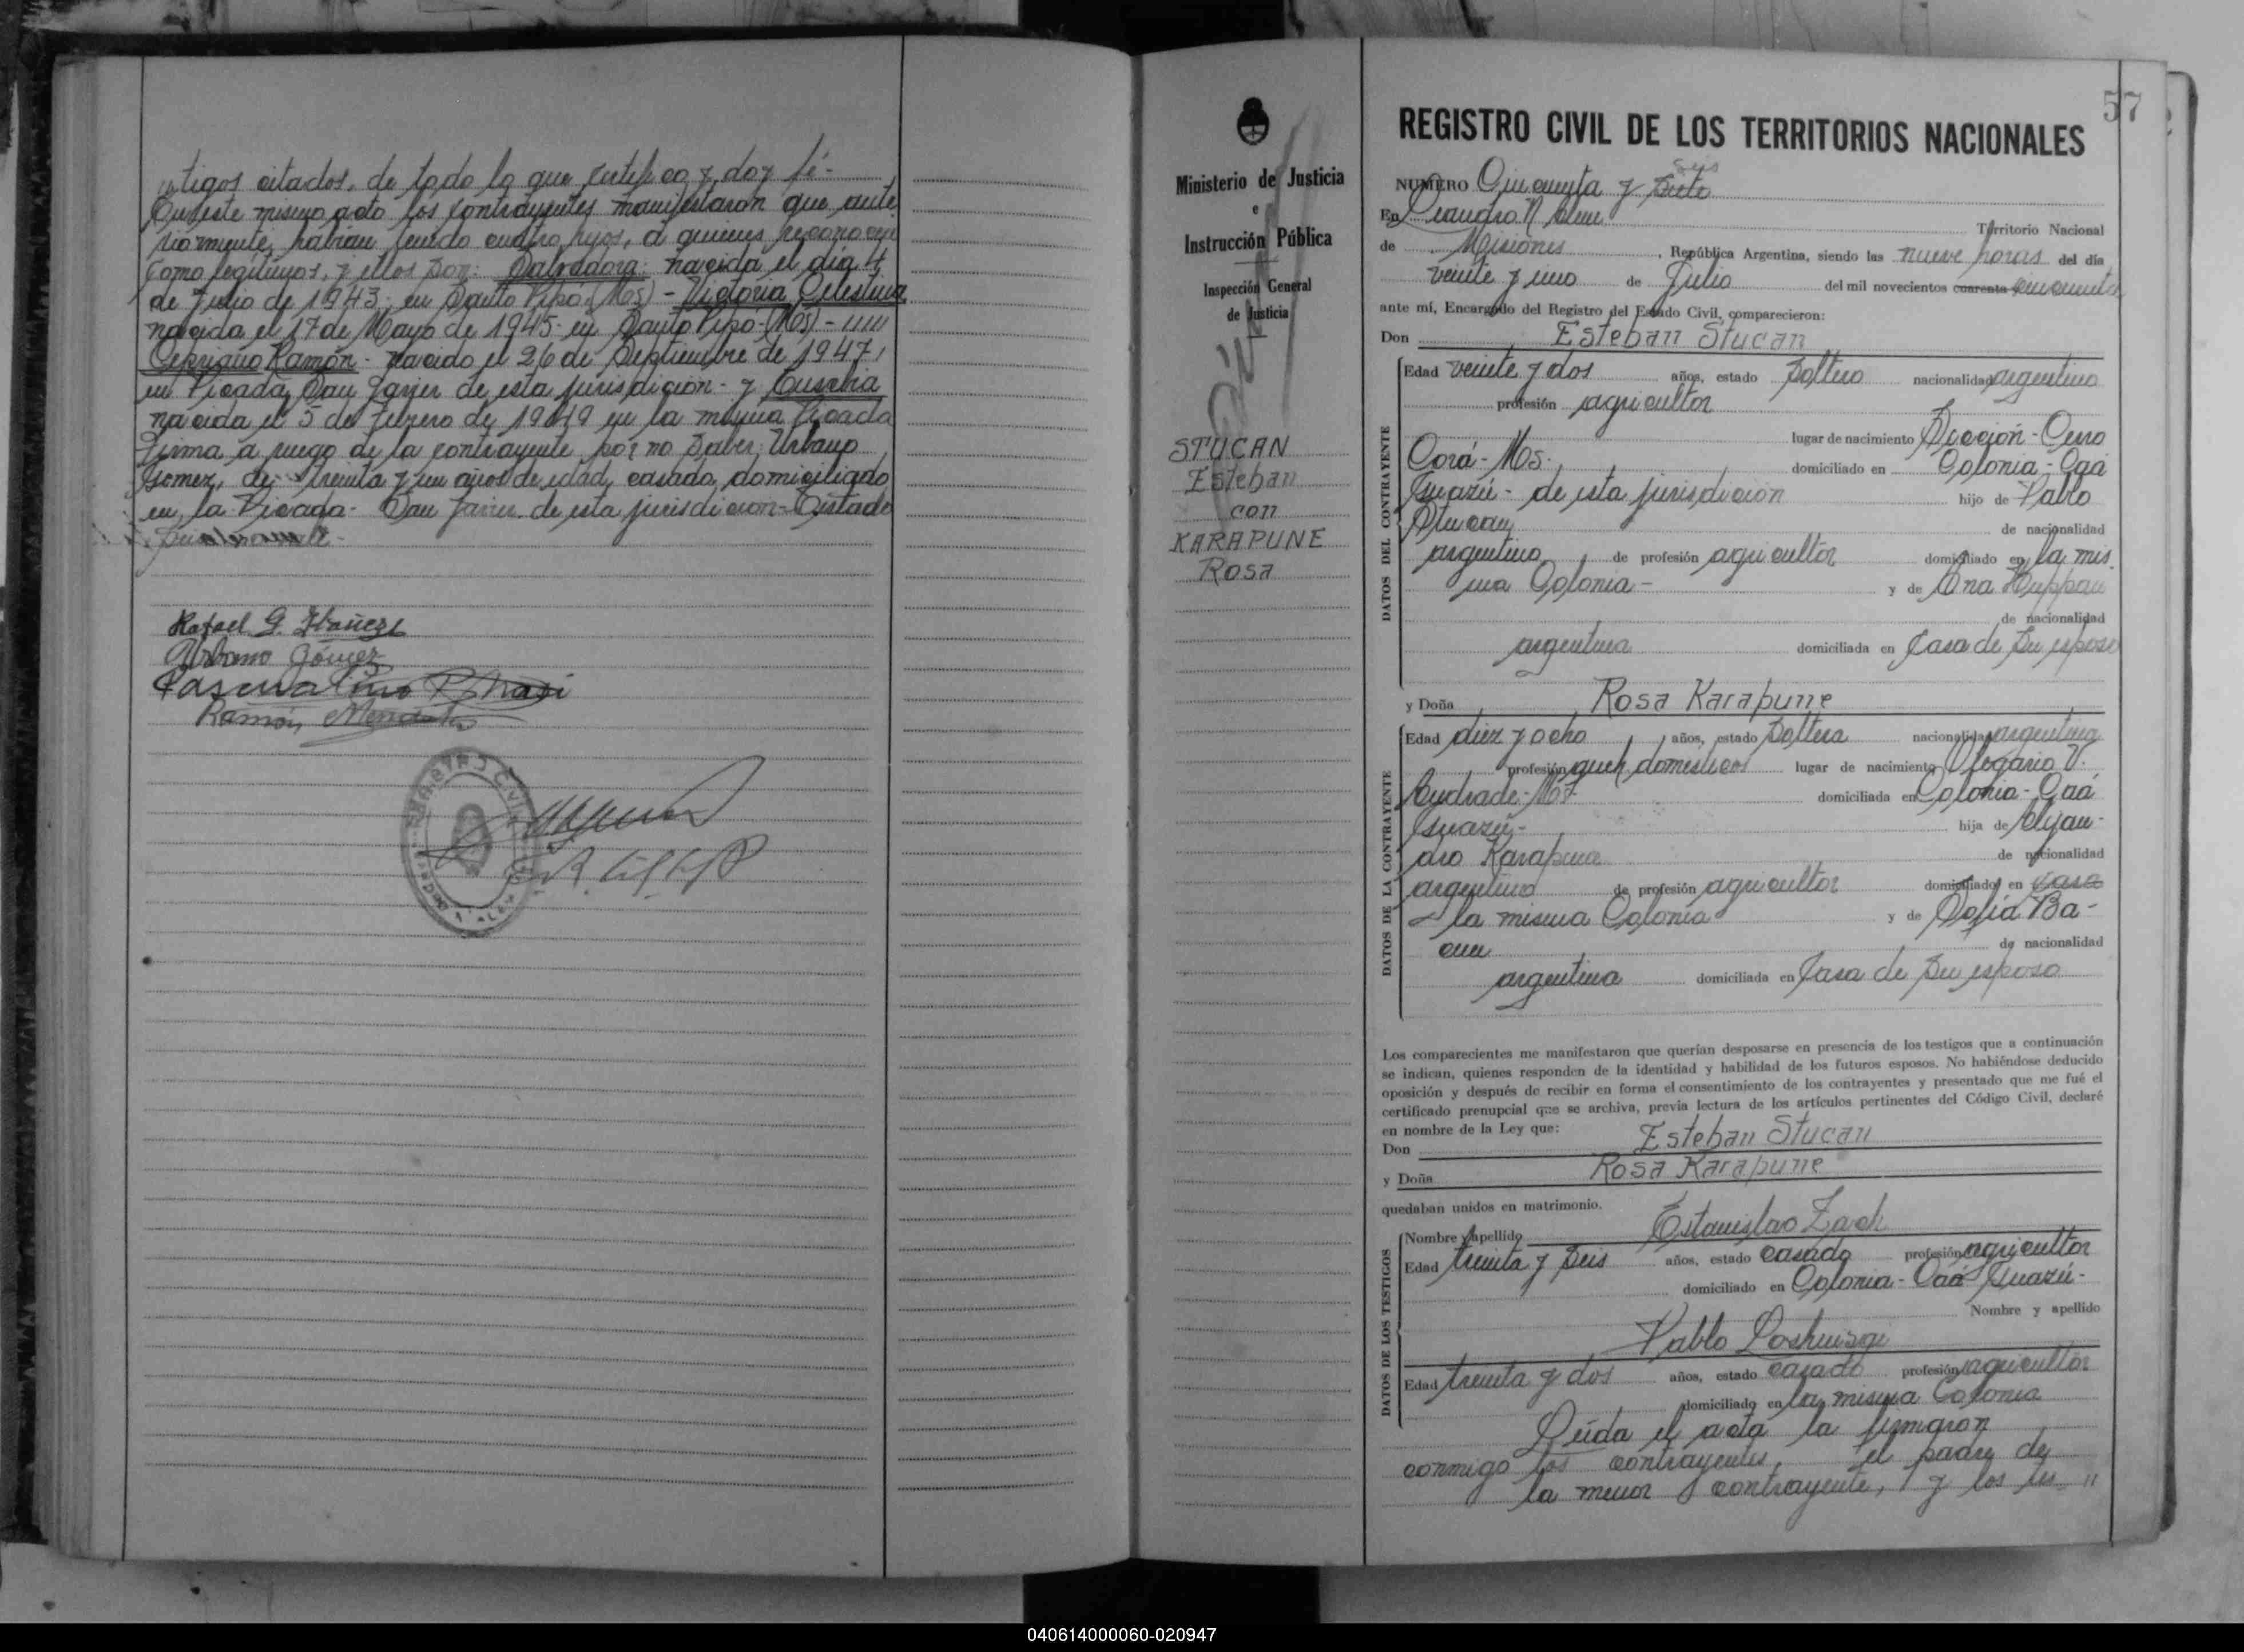 tigos citados, de todo lo que certifico y doy fé-
En este mismo acto los contrayentes manifestaron que ante
riormente, habian tenido cuatro hijos, a quienes reconocen
como legítimos, y ellos son: Salvadora: nacida el dia 4
de Julio de 1943- en Santo Pipó (Mos) - Victoria Celestina
nacida el 17 de Mayo de 1945- en Santo Pipó-(Mos)-
Cipriano Ramón- nacido el 26 de Septiembre de 1947,
en Picada San Javier de esta jurisdicion- y Eusebia
nacida el 5 de Febrero de 1949 en la misma Picada
Firma a ruego de la contrayente por no saber: Urbano
Gomez, de treinta y un años de edad, casado, domiciliado
en la Picada- San Javier de esta jurisdicion-
Rafael G. Ibañez
Urbano Gómez
Ramón
57
REGISTRO CIVIL DE LOS TERRITORIOS NACIONALES
Ministerio de Justicia
e
Instrucción Pública
Inspección General
de Justicia
STUCAN
Esteban
con
KARAPUNE
Rosa
seis
NUMERO Cincuenta y siete
En Leandro N. Alem Territorio Nacional
de Misiones, República Argentina, siendo las nueve horas del día
veinte y uno de Julio del mil novecientos cuarenta cincuenta
ante mí, Encargado del Registro del Estado Civil, comparecieron:
Don Esteban Stucan
DATOS DEL CONTRAYENTE
Edad veinte y dos años, estado soltero nacionalidad argentino
profesión agricultor
lugar de nacimiento Sección- Cerro
Corá- Mos. domiciliado en Colonia- Caá
Guazú- de esta jurisdicion hijo de Pablo
Stucan de nacionalidad
argentino, de profesión agricultor domiciliado en la mis
ma Colonia- y de Ana
de nacionalidad
argentina domiciliada en casa de su esposo
y Doña Rosa Karapune
DATOS DE LA CONTRAYENTE
Edad diez y ocho años, estado soltera nacionalidad argentina
profesión queh. domesticos lugar de nacimiento Olegario V.
Andrade- Mos domiciliada en Colonia- Caá
Guazú- hija de Alejan-
dro Karapune de nacionalidad
argentino de profesión agricultor domiciliado en casa
la misma Colonia y de Sofia Ba-
de nacionalidad
argentina domiciliada en casa de su esposo
Los comparecientes me manifestaron que querían desposarse en presencia de los testigos que a continuación
se indican, quienes responden de la identidad y habilidad de los futuros esposos. No habiéndose deducido
oposición y después de recibir en forma el consentimiento de los contrayentes y presentado que me fué el
certificado prenupcial que se archiva, previa lectura de los artículos pertinentes del Código Civil, declaré
en nombre de la Ley que:
Don Esteban Stucan
y Doña Rosa Karapune
quedaban unidos en matrimonio.
DATOS DE LOS TESTIGOS
Nombre y apellido Estanislao Zach
Edad treinta y seis años, estado casado profesión agricultor
domiciliado en Colonia- Caá Guazú-
Nombre y apellido
Pablo
Edad treinta y dos años, estado casado profesión agricultor
domiciliado en la misma Colonia
Leída el acta la firmaron
conmigo los contrayentes, el padre de
la menor contrayente, y los tes"
040614000060-020947